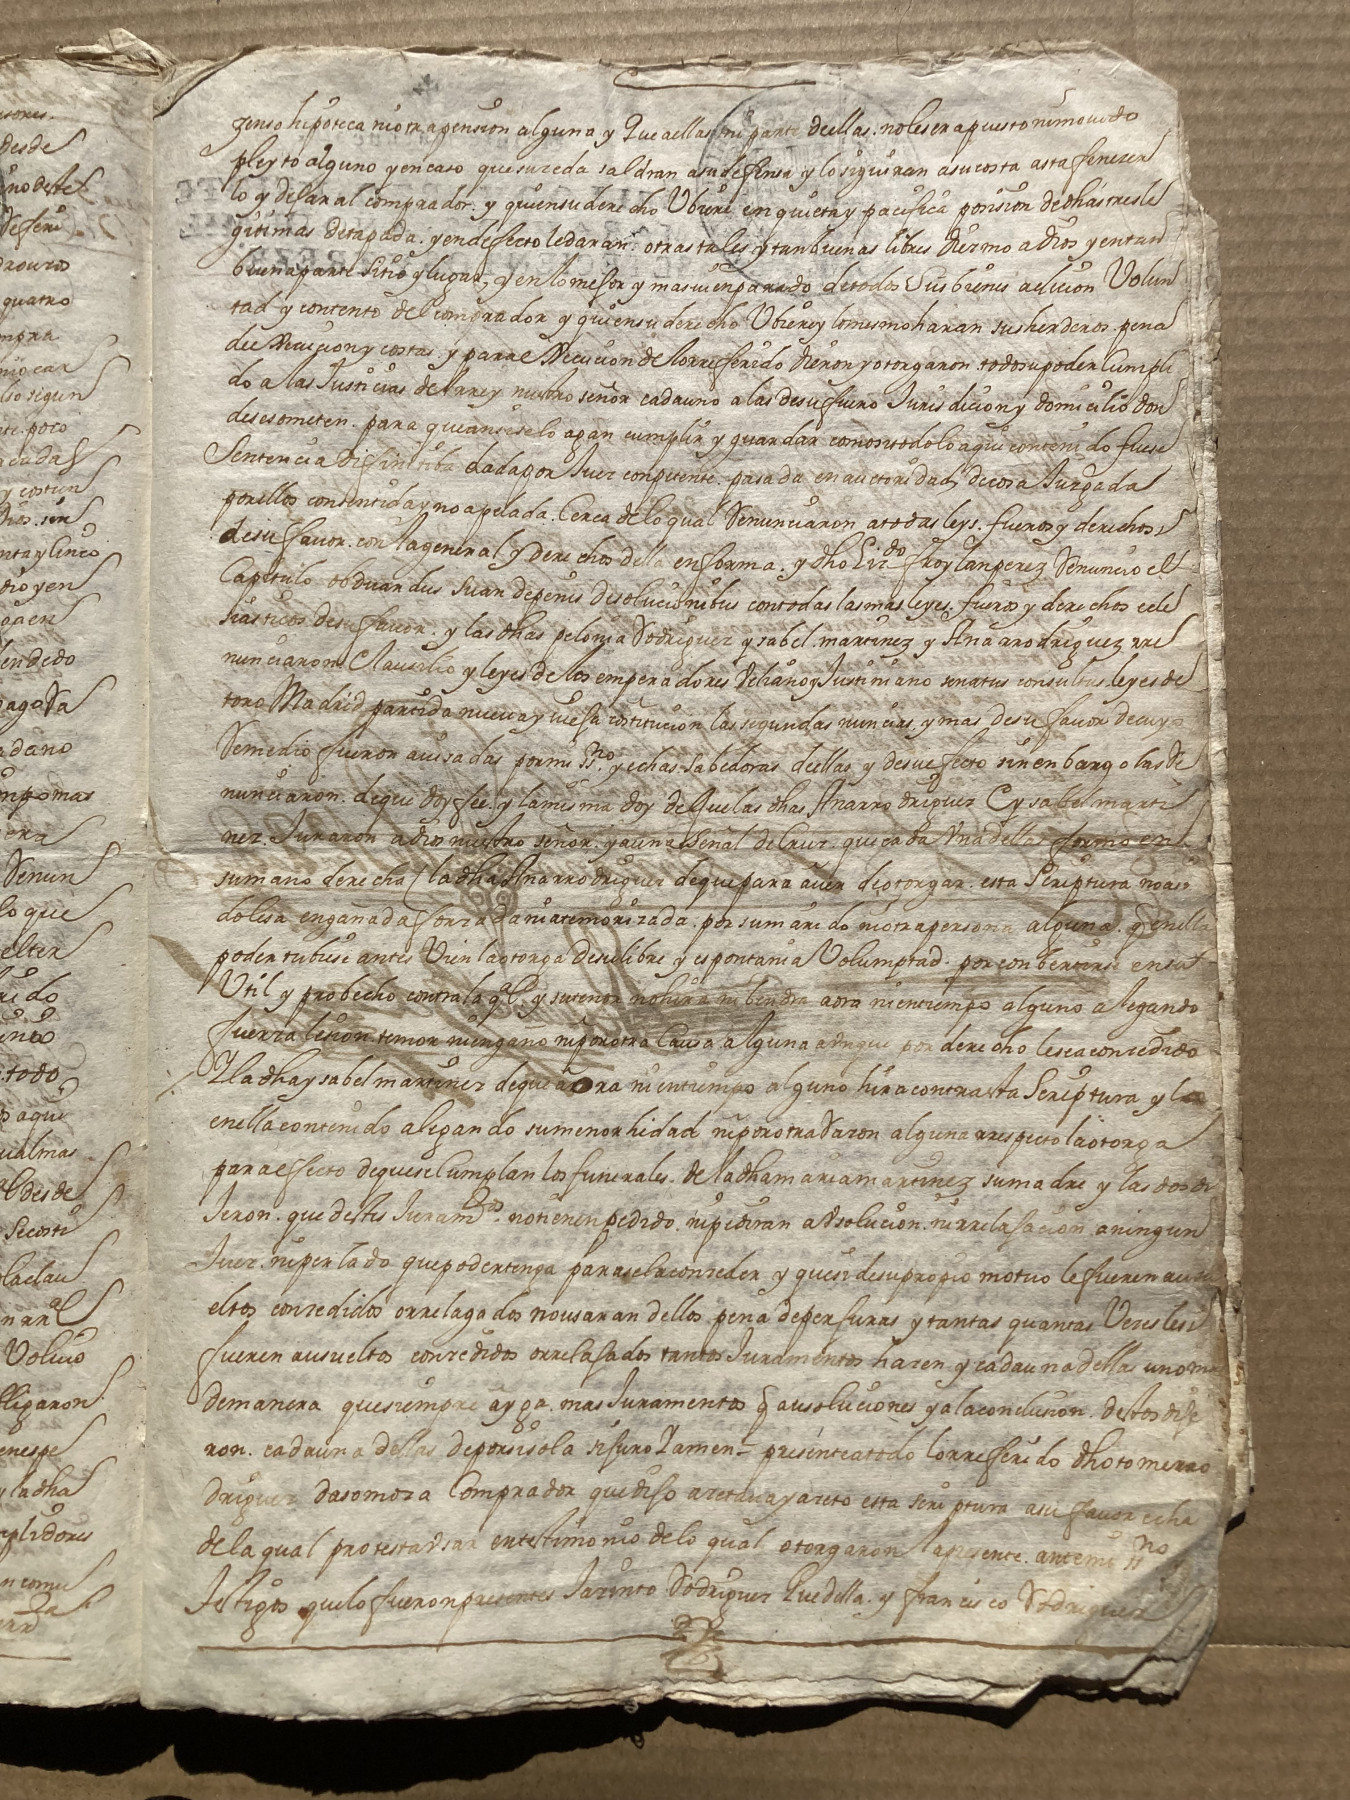 zenso hipoteca ni otra pension alguna y Que a ellas ni parte de ellas. no les era puesto ni movido
pleyto alguno y en caso que suceda saldran a su defensa y lo siguiran a su costa asta fenecer
lo y dejar al comprador. y quien su derecho Ubiere en quieta y pacifica posision de dhas tres le
gitimas de tapada. y en defecto le daran otras tales y tan buenas libres diermo a dios y en tan
buena parte sitio y lugar, y en lo mejor y mas bien parado de todos sus bienes a elicion Volun
tad y contento del comprador y quien su derecho Ubiere y lo mesmo haran sus herderos. pena
de execucion y costas. y para execucion de lo rreferido dieron y otorgaron todo su poder cumpli
do a las Justicias del rrey nuestro señor cada uno a las de su fuero Jurisdicion y domicilio don
de se someten. para que ansi se lo agan cumplir y guardar como si todo lo aqui contenido fuese
Sentencia difinitiba dada por Juez conpetente. pasada en auctoridad de cosa Juzgada
por ellos consentida y no apelada. Cerca de lo qual Renunciaron a todas leys. fueros y derechos
de su favor. con la general y derechos della en forma. y dho Lizdo froylan perez Renuncio el
Capitulo obduardus suan de penis de solucionibus con todas las mas leyes. fueros y derechos ecle
siasticos de su favor. y las dhas pelonia Rodriguez ysabel. martinez y Ana rrodriguez rre
nunciaron el ausilio y leyes de los emperadores Veliano y Justiniano senatus consultus leyes de
toro Madrid partida nueva y vieja costitucion las segundas nuncias. y mas de su favor de cuyo
Remedio fueron avissadas por mi ssno. y echas sabedoras de ellas y de su efecto sin enbargo las Re
nunciaron. de que doy fee. y la misma doy de Que las dhas Ana rrodriguez e ysabel marti
nez. Juraron a dios nuestro señor. y a una Señal de Cruz. que cada Una dellas formo en
su mano derecha la dha Ana rrodriguez de que para aver de otorgar. esta Scriptura no a si
do lesa engañada forzada ni atemorizada. por su marido ni otra persona alguna. q en ella
poder tubiese antes Vien la otorga de su libre y espontania Volumptad. por conbertirse en su
Util y probecho contra la ql. y su tenor no hira ni bendra aora ni en tiempo alguno alegando
fuerza lesion. temor ni engaño ni por otra Causa alguna aunque por derecho le sea concedido
Y la dha ysabel martinez de que aora ni en tiempo alguno hira contra esta Scriptura y lo
en ella contenido alegando su menor hidad ni por otra Razon alguna rrespecto la otorga
para efecto de que se Cumplan los funerales. de la dha maria martinez su madre y las dos di
Jeron. que destis Juramtos. no tienen pedido. ni pidiran absolucion. ni rrelasacion a ningun
Juez. ni perlado que poder tenga para se la conceder y que si de su propio motuo le fueren ausu
eltos concedidos o rrelagados no usaran dellos pena de perjuras y tantas quantas Veces lesi
fueren ausueltos concedidos o rrelasados tantos Juramentos hazen y cada una dellas uno mas
demanera que siempre ayga. mas Juramentos q ausoluciones y a la conclusion. destos dije
ron. cada una dellas de por si sola si Juro Y amen= presente a todo lo rreferido dho tome rro
driguez dasomoza Comprador que dijo aceta va y aceto esta scriptura a su favor echa
de la qual protesta Usar en testimonio de lo qual otorgaron la presente. ante mi ssno
Testigos que lo fueron presentes Jazinto Rodriguez Quedella. y francisco Rodriguez